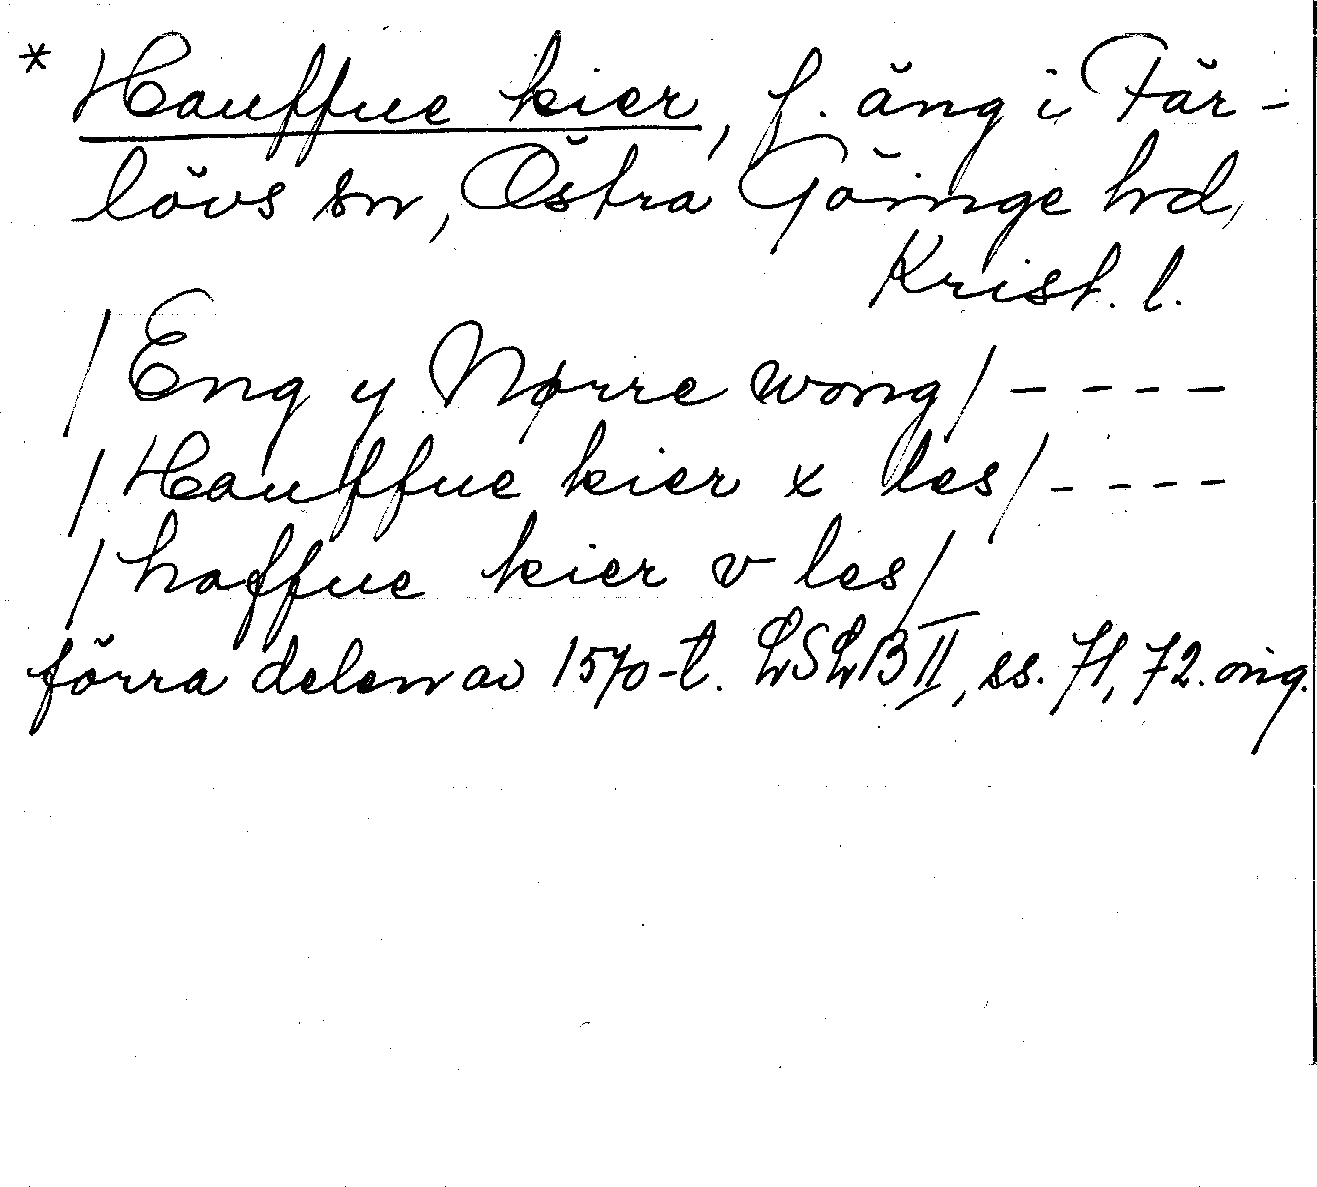 * Hauffue kier, f. äng i Fär-
lövs sn, Östra Göinge hd,
Krist. l.
/Eng y Nørre wong/ - - - -
/Hauffue kier x les/ - - - -
/haffue kier v les/
förra delen av 1570-t. LSLB II, ss. 71, 72. orig.